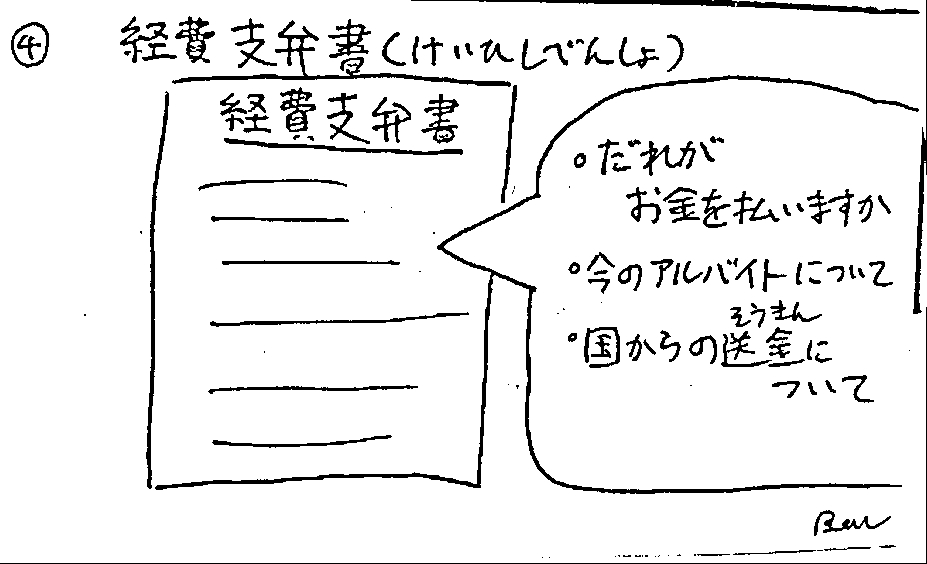 ④ 経費支弁書(けいひしべんしょ)
経費支弁書
・だれが
お金を払いますか
・今のアルバイトについて
そうきん
・国からの送金に
ついて